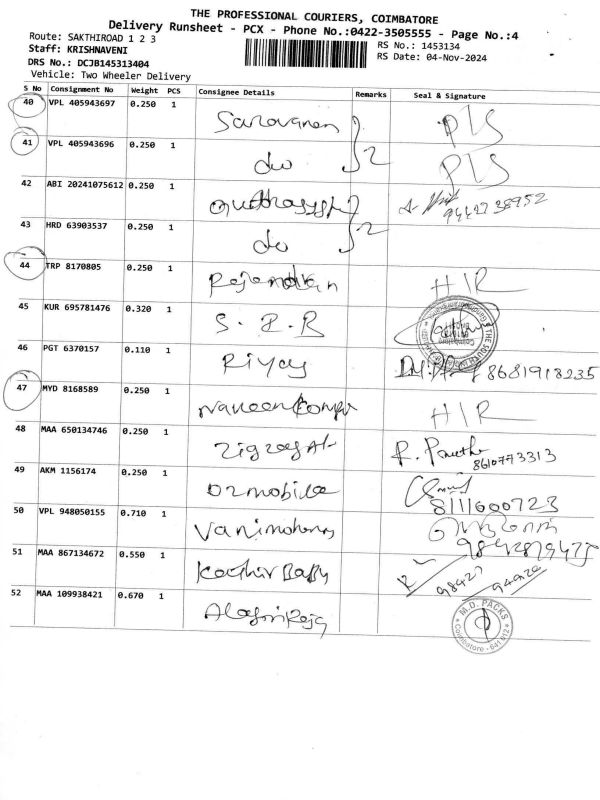 THE PROFESSIONAL COURIERS, COIMBATORE
Delivery Runsheet - PCX - Phone No.:0422-3505555 - Page No.:4
Route: SAKTHIROAD 1 2 3
RS No.: 1453134
Staff: KRISHNAVENI
RS Date: 04-Nov-2024
DRS No.: DCJB145313404
Vehicle: Two Wheeler Delivery
S No Consignment No Weight PCS Consignee Details Remarks Seal & Signature
40 VPL 405943697 0.250 1 Saravanan 2 PLS
41 VPL 405943696 0.250 1 do PLS
42 ABI 20241075612 0.250 1 2
43 HRD 63903537 0.250 1 do
44 TRP 8170805 0.250 1 Rajendran H/R
45 KUR 695781476 0.320 1 S.R.R
46 PGT 6370157 0.110 1 Riyas 8681918235
47 MYD 8168589 0.250 1 H/R
48 MAA 650134746 0.250 1 8610773313
49 AKM 1156174 0.250 1 Dzmobile 8111600723
50 VPL 948050155 0.710 1 Vanimohan
51 MAA 867134672 0.550 1 Kadhir Baby
52 MAA 109938421 0.670 1 Alagniraja M.D. PACKS Coimbatore - 641 012